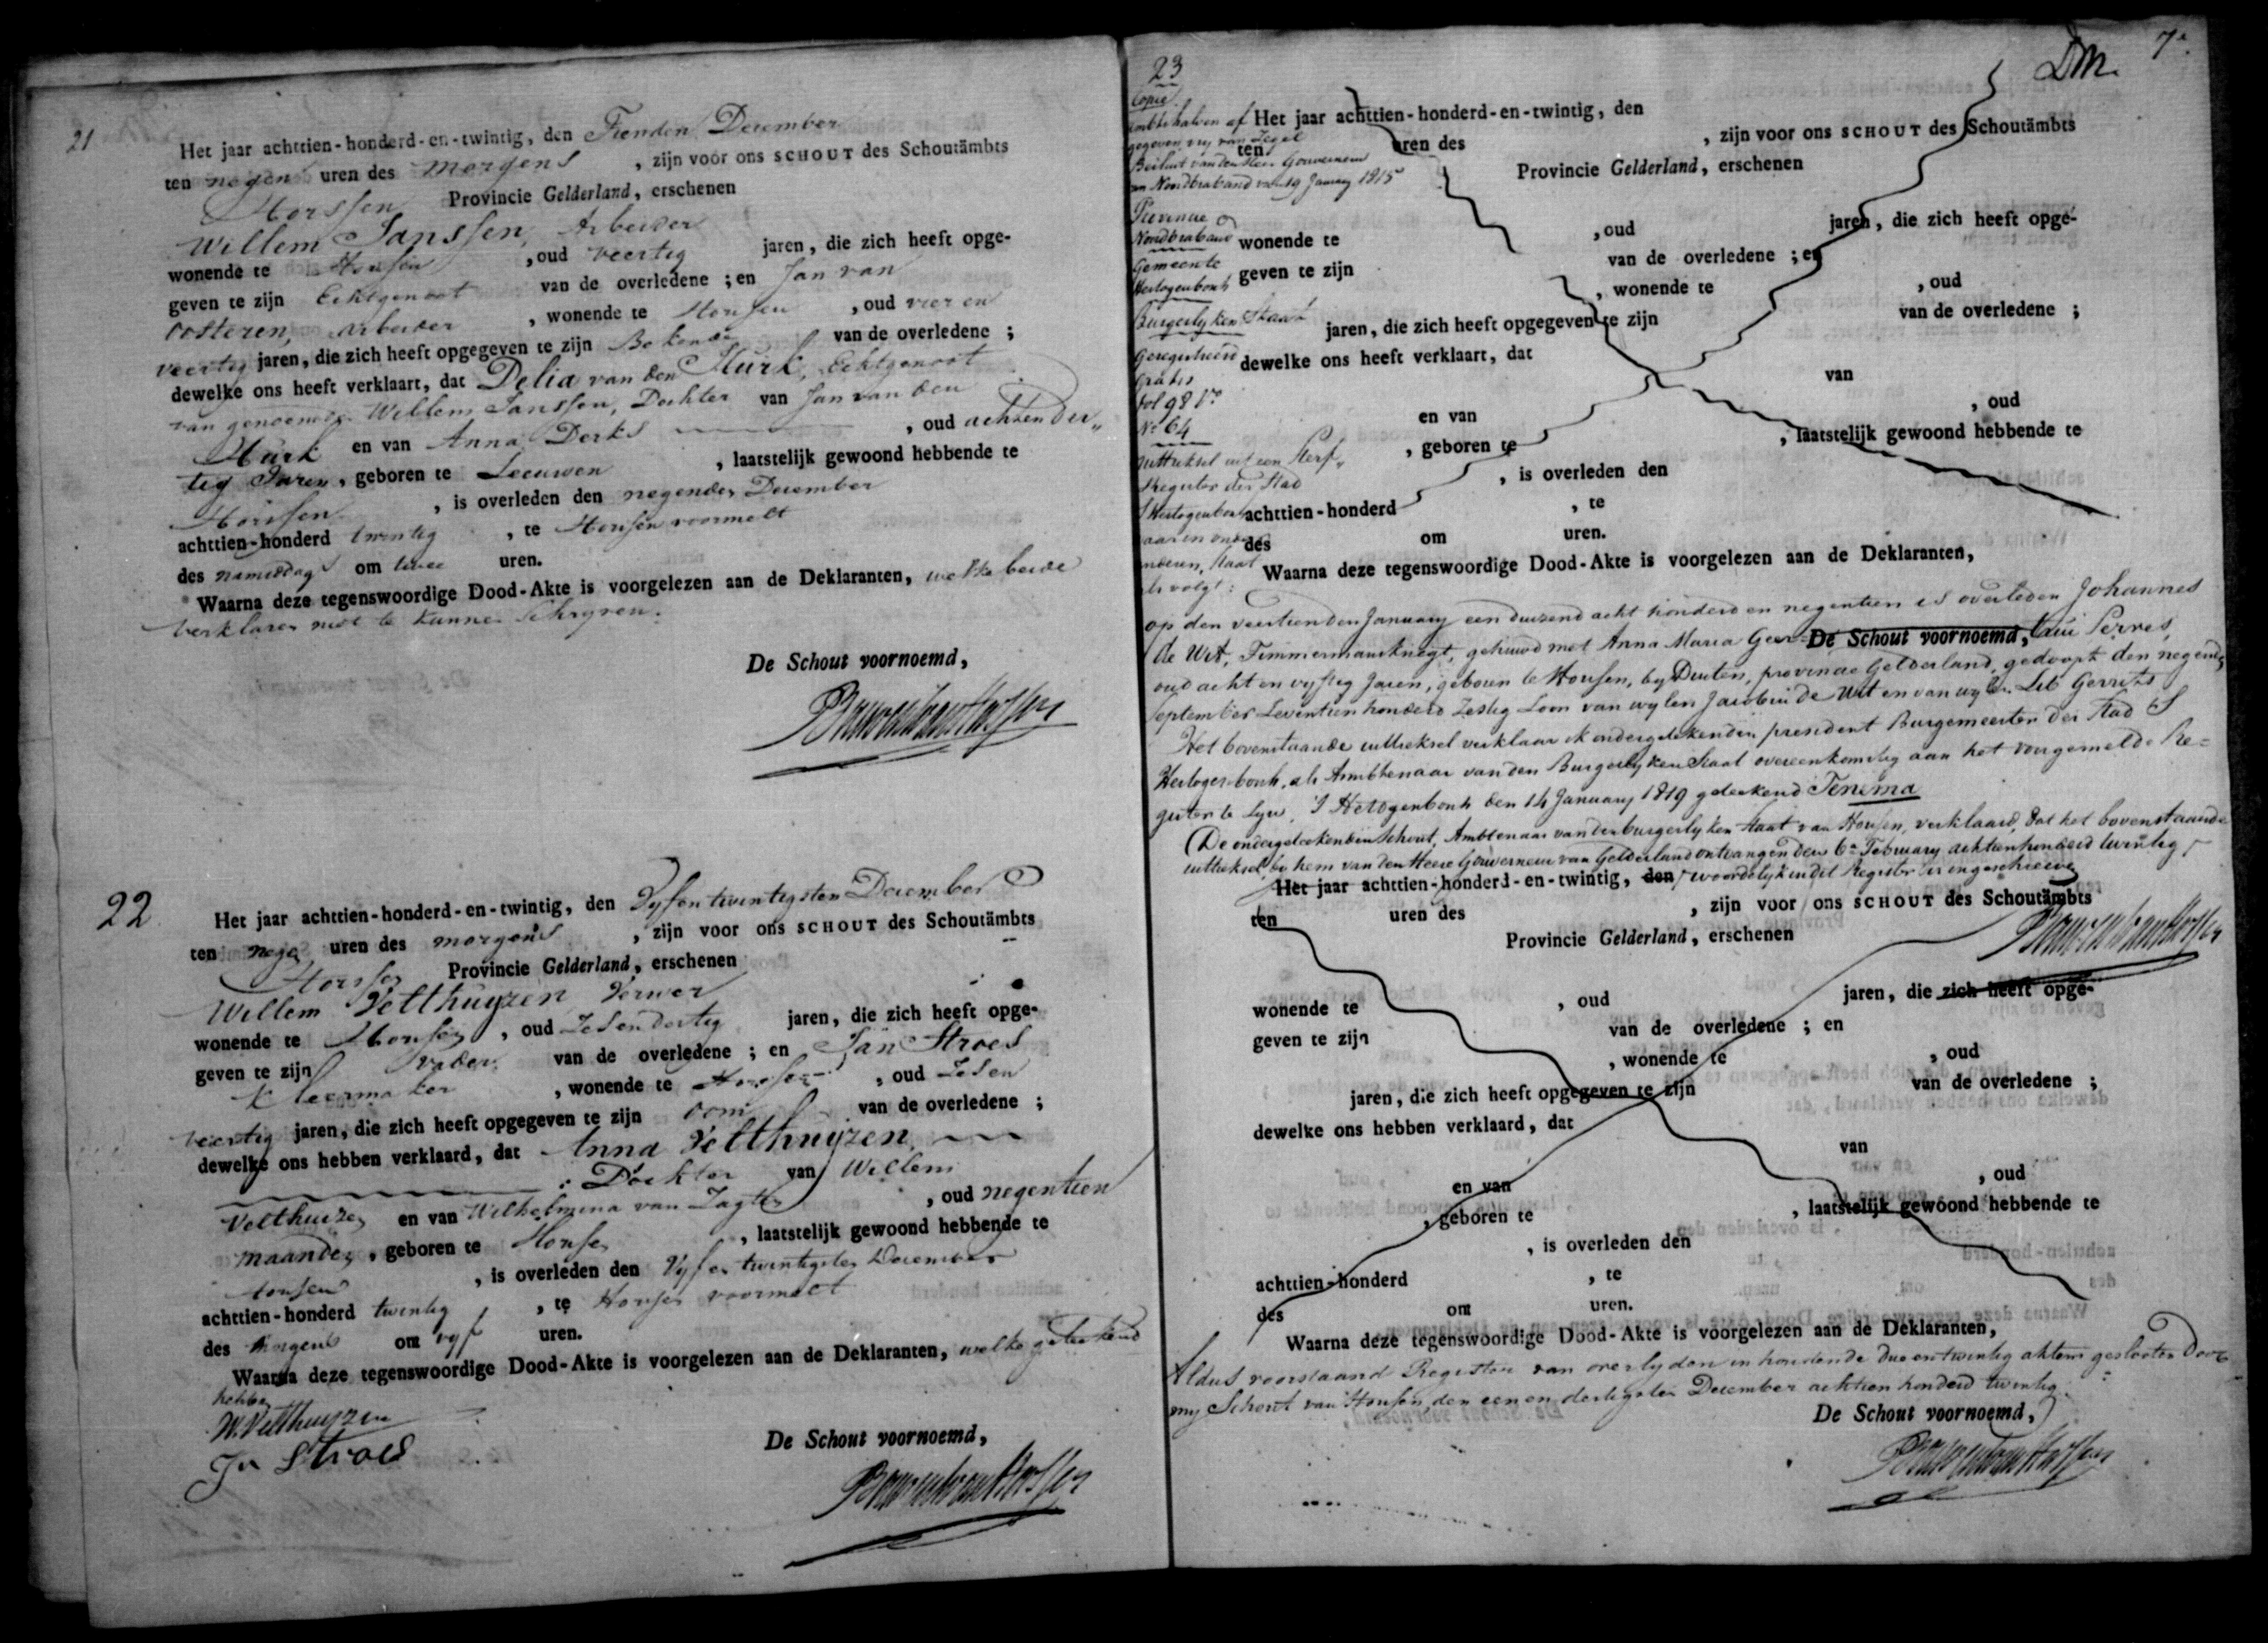 21
Het jaar achttien-honderd-en-twintig, den Tienden December
ten negen uren des morgens, zijn voor ons SCHOUT des Schoutämbts
Horssen Provincie Gelderland, erschenen
Willem Janssen, Arbeider
wonende te Horssen, oud veertig jaren, die zich heeft opge-
geven te zijn Echtgenoot van de overledene; en Jan van
Oosteren, arbeider, wonende te Horssen, oud vier en
veertig jaren, die zich heeft opgegeven te zijn Bekende van de overledene;
dewelke ons heeft verklaart, dat Delia van den Hurk, Echtgenoot
van genoemde Willem Janssen, Dochter van Jan van den
Hurk en van Anna Derks, oud achtender„
tig Jaren, geboren te Leeuwen, laatstelijk gewoond hebbende te
Horssen, is overleden den negenden December
achttien-honderd twintig, te Horssen voormelt
des namiddags om twee uren.
Waarna deze tegenswoordige Dood-Akte is voorgelezen aan de Deklaranten, welke beide
verklaren niet te kunnen schryven.
De Schout voornoemd,
22
Het jaar achttien-honderd-en-twintig, den Vyfentwintigsten December
ten nege uren des morgens, zijn voor ons SCHOUT des Schoutämbts
Horssen Provincie Gelderland, erschenen
Willem Velthuyzen, Verwer
wonende te Horssen, oud Zesendertig jaren, die zich heeft opge-
geven te zijn Vader van de overledene; en Jan Stroes
Kleermaker, wonende te Horssen, oud Zesen
veertig jaren, die zich heeft opgegeven te zijn oom van de overledene;
dewelke ons hebben verklaard, dat Anna Velthuyzen
: Dochter van Willem
Velthuizen en van Wilhelmina van Zagten, oud negentien
maanden, geboren te Horssen, laatstelijk gewoond hebbende te
Horssen, is overleden den Vyfentwintigsten December
achttien-honderd twintig, te Horssen voormelt
des morgens om vyf uren.
Waarna deze tegenswoordige Dood-Akte is voorgelezen aan de Deklaranten, welke geteekend
hebben
W. Velthuyzen
Jn Stroes
De Schout voornoemd,
7e
DM.
23
Copie
ambtshalven af
gegeven vry van Zegel
Besluit van den Heer Gouverneur
van Noordbraband van 19 January 1815
Provincie
Noordbraband
Gemeente
Hertogenbosch
Burgerlyken Staat
Geregistreerd
gratis
fol 98 Vo
No 64
uittreksel uit een Sterf„
Register der Stad
S Hertogenbosch
waarin onder
anderen, staat
als volgt:
Het jaar achttien-honderd-en-twintig, den
ten uren des, zijn voor ons SCHOUT des Schoutämbts
Provincie Gelderland, erschenen
wonende te, oud jaren, die zich heeft opge-
geven te zijn van de overledene; en
, wonende te, oud
jaren, die zich heeft opgegeven te zijn van de overledene;
dewelke ons heeft verklaart, dat
van
en van, oud
, geboren te, laatstelijk gewoond hebbende te
, is overleden den
achttien-honderd, te
des om uren.
Waarna deze tegenswoordige Dood-Akte is voorgelezen aan de Deklaranten,
op den veertienden January een duizend acht honderd en negentien is overleden Johannes
de Wit, Timmermansknegt, gehuwd met Anna Maria De Schout voornoemd,
oud acht en vyftig Jaren, geboren te Horssen, by Druten, provincie Gelderland, gedoopt den negende
September Seventien honderd Zestig Zoon van wylen Jacobus de Wit en van wylen Gerrits
Het bovenstaande uittreksel verklaar ik ondergetekenden president Burgemeester der Stad S
Hertogenbosch, als Ambtenaar van den Burgerlyken Staat overeenkomstig aan het voorgemelde Re=
gister te zyn, S Hertogenbosch den 14 January 1819 geteekend
(De ondergeteekenden Schout, Ambtenaar van den burgerlyken Staat van Horssen, verklaard, dat het bovenstaande
uittreksel, by hem van den Heere Gouverneur van Gelderland ontvangen den 6e February achtienhonderd twintig
Het jaar achttien-honderd-en-twintig, den woordelyk in dit Register is ingeschreven
ten uren des, zijn voor ons SCHOUT des Schoutämbts
Provincie Gelderland, erschenen
wonende te, oud jaren, die zich heeft opge-
geven te zijn van de overledene; en
, wonende te, oud
jaren, die zich heeft opgegeven te zijn van de overledene;
dewelke ons hebben verklaard, dat
van
en van, oud
, geboren te, laatstelijk gewoond hebbende te
, is overleden den
achttien-honderd, te
des om uren.
Waarna deze tegenswoordige Dood-Akte is voorgelezen aan de Deklaranten,
Aldus voorstaand Register van overlyden inhoudende drie en twintig aktens gesloten door
my Schout van Horssen, den een en dertigsten December achtien honderd twintig.
De Schout voornoemd,